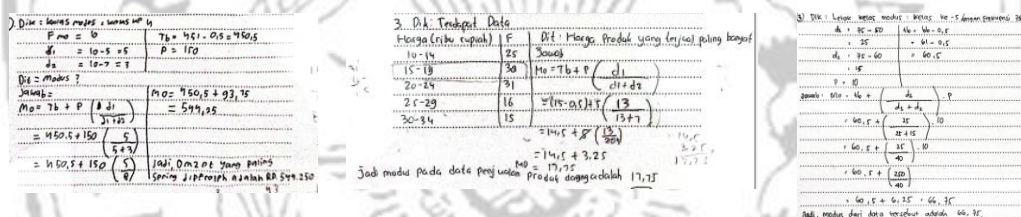 ) Dik = kelas modus = kelas ke 4
Fmo = 6
d₁ = 10-5 = 5
d₂ = 10-7 = 3
Tb = 451 - 0,5 = 450,5
P = 150
Dit = Modus ?
Jawab =
Mo = Tb + P ( d₁ / d₁+d₂ )
= 450,5 + 150 ( 5 / 5+3 )
= 450,5 + 150 ( 5 / 8 )
Mo = 450,5 + 93,75
= 544,25
Jadi, Omzet yang paling
Sering diperoleh adalah RP. 544.250
3. Dik: Terdapat Data
Harga (ribu rupiah) | F
10-14 | 25
15-19 | 38
20-24 | 31
25-29 | 16
30-34 | 15
Dit : Harga Produk yang terjual paling banyak
Jawab
Mo = Tb + P ( d₁ / d₁+d₂ )
= (15-0,5) + 5 ( 13 / 13+7 )
= 14,5 + 5 ( 13 / 20 )
= 14,5 + 3.25
Mo = 17,75
Jadi modus pada data penjualan Produk dagang adalah 17,75
3) Dik : Letak kelas modus : kelas ke-5 dengan frekuensi 75
d₁ : 75 - 50
: 25
d₂ : 75 - 60
: 15
P : 10
tb : tb - 0,5
: 61 - 0,5
: 60,5
Jawab : Mo : tb + ( d₁ / d₁ + d₂ ) . P
: 60,5 + ( 25 / 25 + 15 ) . 10
: 60,5 + ( 25 / 40 ) . 10
: 60,5 + ( 250 / 40 )
: 60,5 + 6,25 : 66,75
Jadi, modus dari data tersebut adalah 66,75